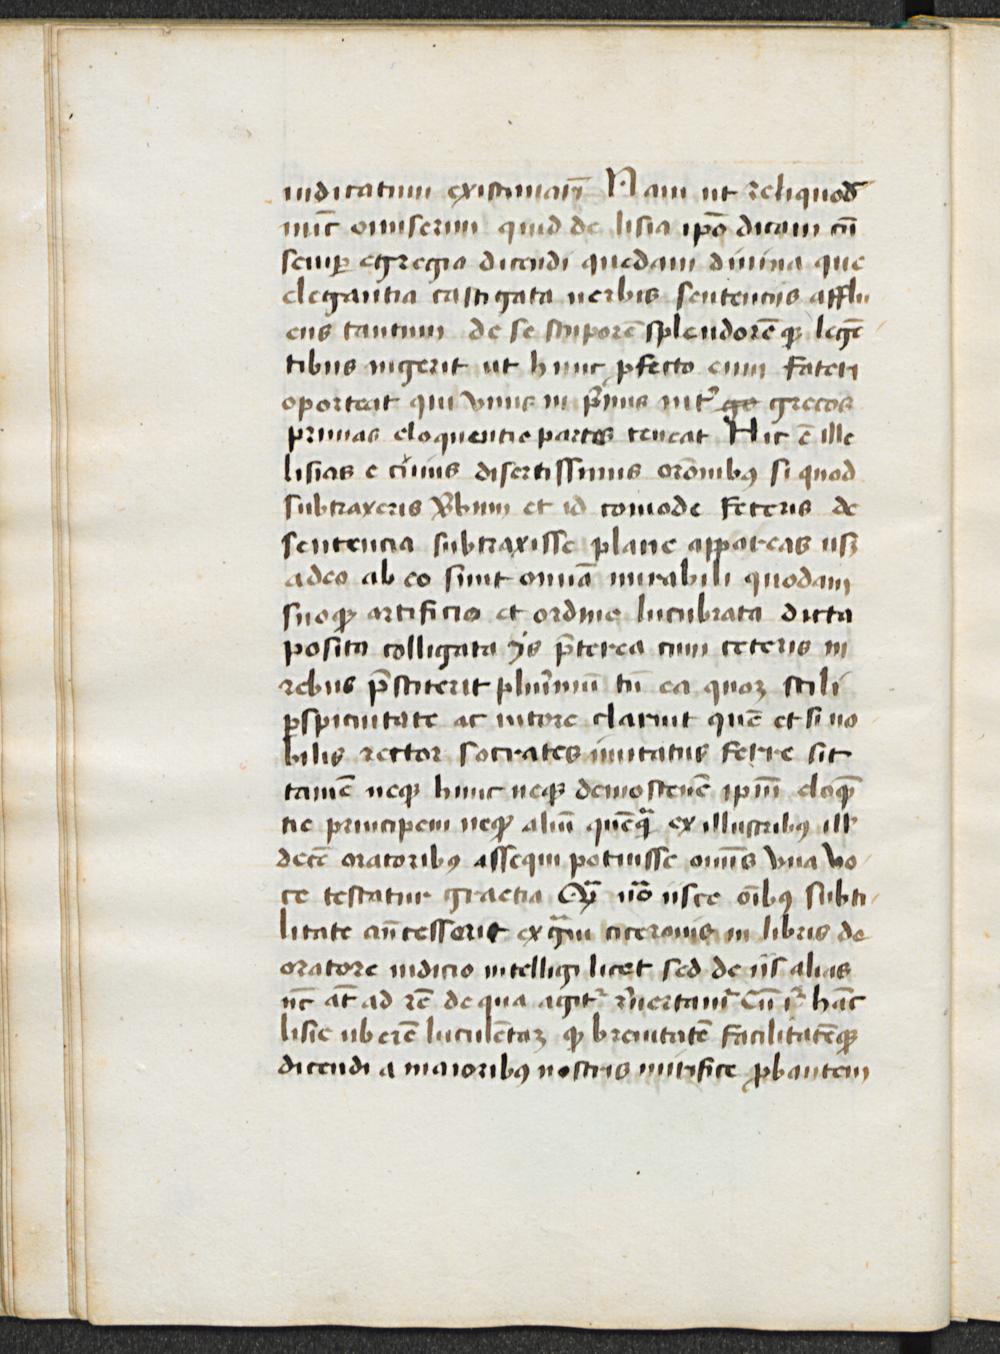 iudicatum existimaꝛ̄ Nam ut reliquos
nūc omiserim quid de lisia ip̄o dicam cū
semꝑ egregia dicendi quedam diuina que
elegantia castigata uerbis sentenciis afflu
ens tantum de se stuporē splendorēqꝫ legē
tibus ingerit ut hunc ꝓfecto eum fateri
oporteat qui vnus in p̄mis int᷑ ge grecos
primas eloquentie partes teneat Hic ē ille
lisias e ciuiis disertissimus orōnibꝯ si quod
subtraxeris v̄bum et id comode feceris de
sentencia subtraxisse plane appareas usꝫ
adeo ab eo sunt omīa mirabili quodam
suoqꝫ artificio et ordine lucubrata dicta
posita colligata ijs p̄terea cum ceteris in
rebus p̄stiterit plurimū tū ea quoꝫ stili
ꝑspicuitate ac nitore claruit quē et si no
bilis rector socrates imitatus ferre sit
tamē neqꝫ hunc neqꝫ demostenē ipm̄ eloqē
tie principem neqꝫ aliū quēqꝫ ex illustribꝯ ill'
decē oratoribꝯ assequi potuisse omīs vna vo
ce testatur graecia Qꝫ uo iisce oībꝯ subti
litate an̄tesserit ex qꝫ ciceronis in libris de
oratore iudicio intelligi licet sed de iis alias
nc̄ at̄ ad rē de qua agit᷑ r̄uertam᷑ Cū i᷑ hāc
lisie uberē luculētaꝫ qꝫ breuitatē facilitatēqꝫ
dicendi a maioribꝯ nostris mirifice ꝓbautem